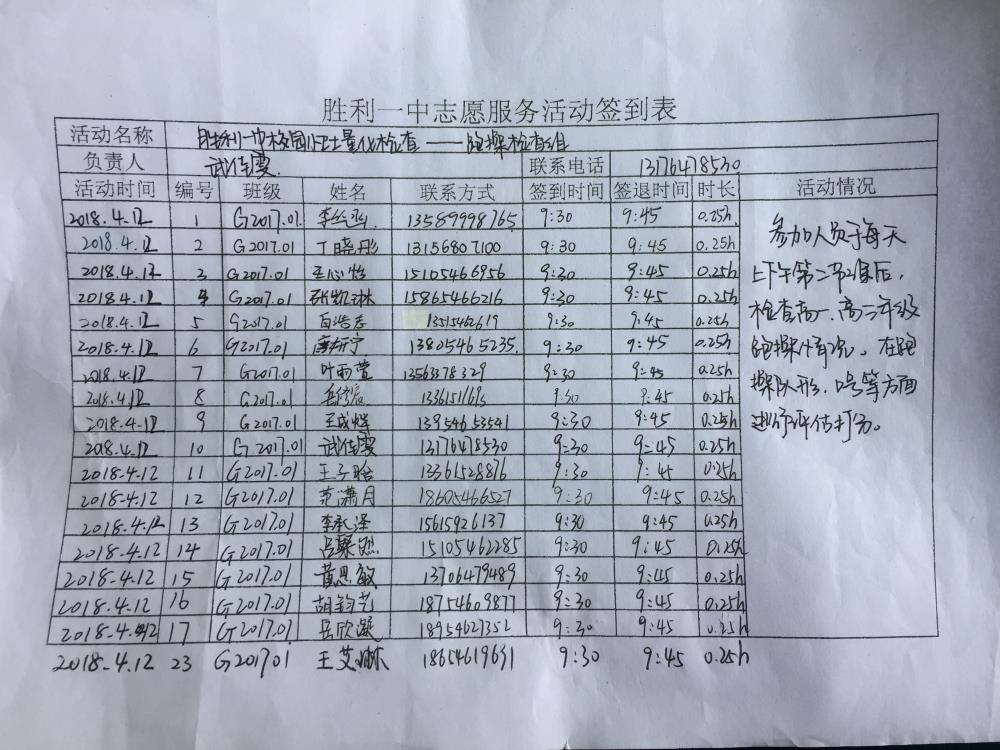 胜利一中志愿服务活动签到表
活动名称 胜利一中校园卫生量化检查——跑操检查组
负责人 武佳雯 联系电话 13176478530
活动时间 编号 班级 姓名 联系方式 签到时间 签退时间 时长 活动情况
2018.4.12 1 G2017.01. 13589998765 9:30 9:45 0.25h
2018.4.12 2 G2017.01 丁晓彤 13156807100 9:30 9:45 0.25h
2018.4.12 3 G2017.01 王心怡 15105466956 9:30 9:45 0.25h
2018.4.12 4 G2017.01 张凯琳 15865466216 9:30 9:45 0.25h
2018.4.12 5 G2017.01 白浩志 13515462619 9:30 9:45 0.25h
2018.4.12 6 G2017.01 13805465235. 9:30 9:45 0.25h
2018.4.12 7 G2017.01 叶雨萱 1356378329 9:30 9:45 0.25h
2018.4.12 8 G2017.01 9:30 9:45 0.25h
2018.4.12 9 G2017.01 王成烨 13954653541 9:30 9:45 0.25h
2018.4.12 10 G2017.01 武佳雯 13176478530 9:30 9:45 0.25h
2018.4.12 11 G2017.01 王子晗 13361528876 9:30 9:45 0.25h
2018.4.12 12 G2017.01 范潇月 18605466527 9:30 9:45 0.25h
2018.4.12 13 G2017.01 李承泽 15615926137 9:30 9:45 0.25h
2018.4.12 14 G2017.01 吕燊然 15105462285 9:30 9:45 0.25h
2018.4.12 15 G2017.01 黄思敏 13706479489 9:30 9:45 0.25h
2018.4.12 16 G2017.01 胡钧艺 18754609877 9:30 9:45 0.25h
2018.4.12 17 G2017.01 岳欣凝 18954627352 9:30 9:45 0.25h
2018.4.12 23 G201701 王艾琳 18654619691 9:30 9:45 0.25h
参加人员于每天
上下午第二节课后，
检查高一、高二年级
跑操情况。在跑
操队形、口号等方面
进行评估打分。